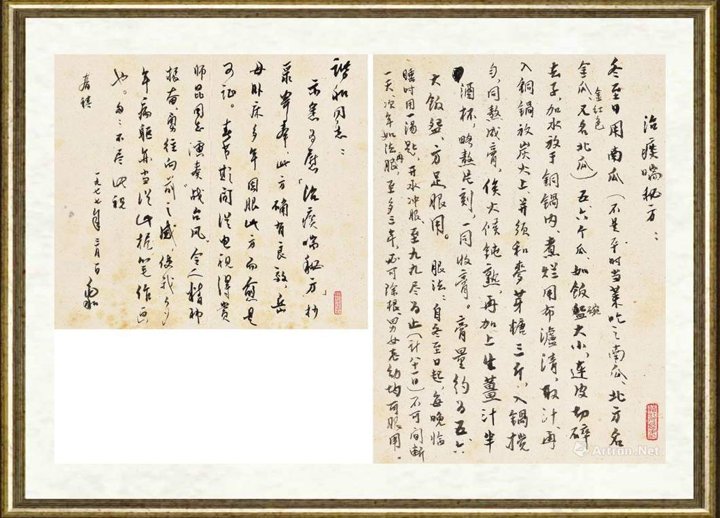 治痰喘秘方：
冬至日用南瓜（不是平时当菜吃之南瓜，北方名
金瓜，又名北瓜）五、六个瓜，如饭盌大小，连皮切碎
金红色
碗
去子，加水放于铜锅内煮烂用布滤清，取汁，再
入铜锅放炭火上，并须和麦芽糖三斤，入锅搅
匀，同熬成膏，俟火候纯熟，再加上生薑汁半
酒杯，略熬片刻，一同收膏。膏量约为五六
大饭盌，方足服用。服法：自冬至日起每晚临
睡时用一汤匙，开水冲服，至九九尽为止（计八十一日）不可间断
一天，次年如法再服，至多三年，必可除根，男女老幼均可服用。
和同志：
示悉为慰「治痰喘秘方」抄
录寄奉，此方确有良效，岳
母卧床多年因服此方而愈是
可证。春节期间从电视得赏
师昆同志演奏战台风，令人精神
振奋，勇往向前之感，使我多
年病躯亦当从此抗笔作画
也。匆匆不尽，此祝
春祺
一九七七年三月一日
Artron.Net